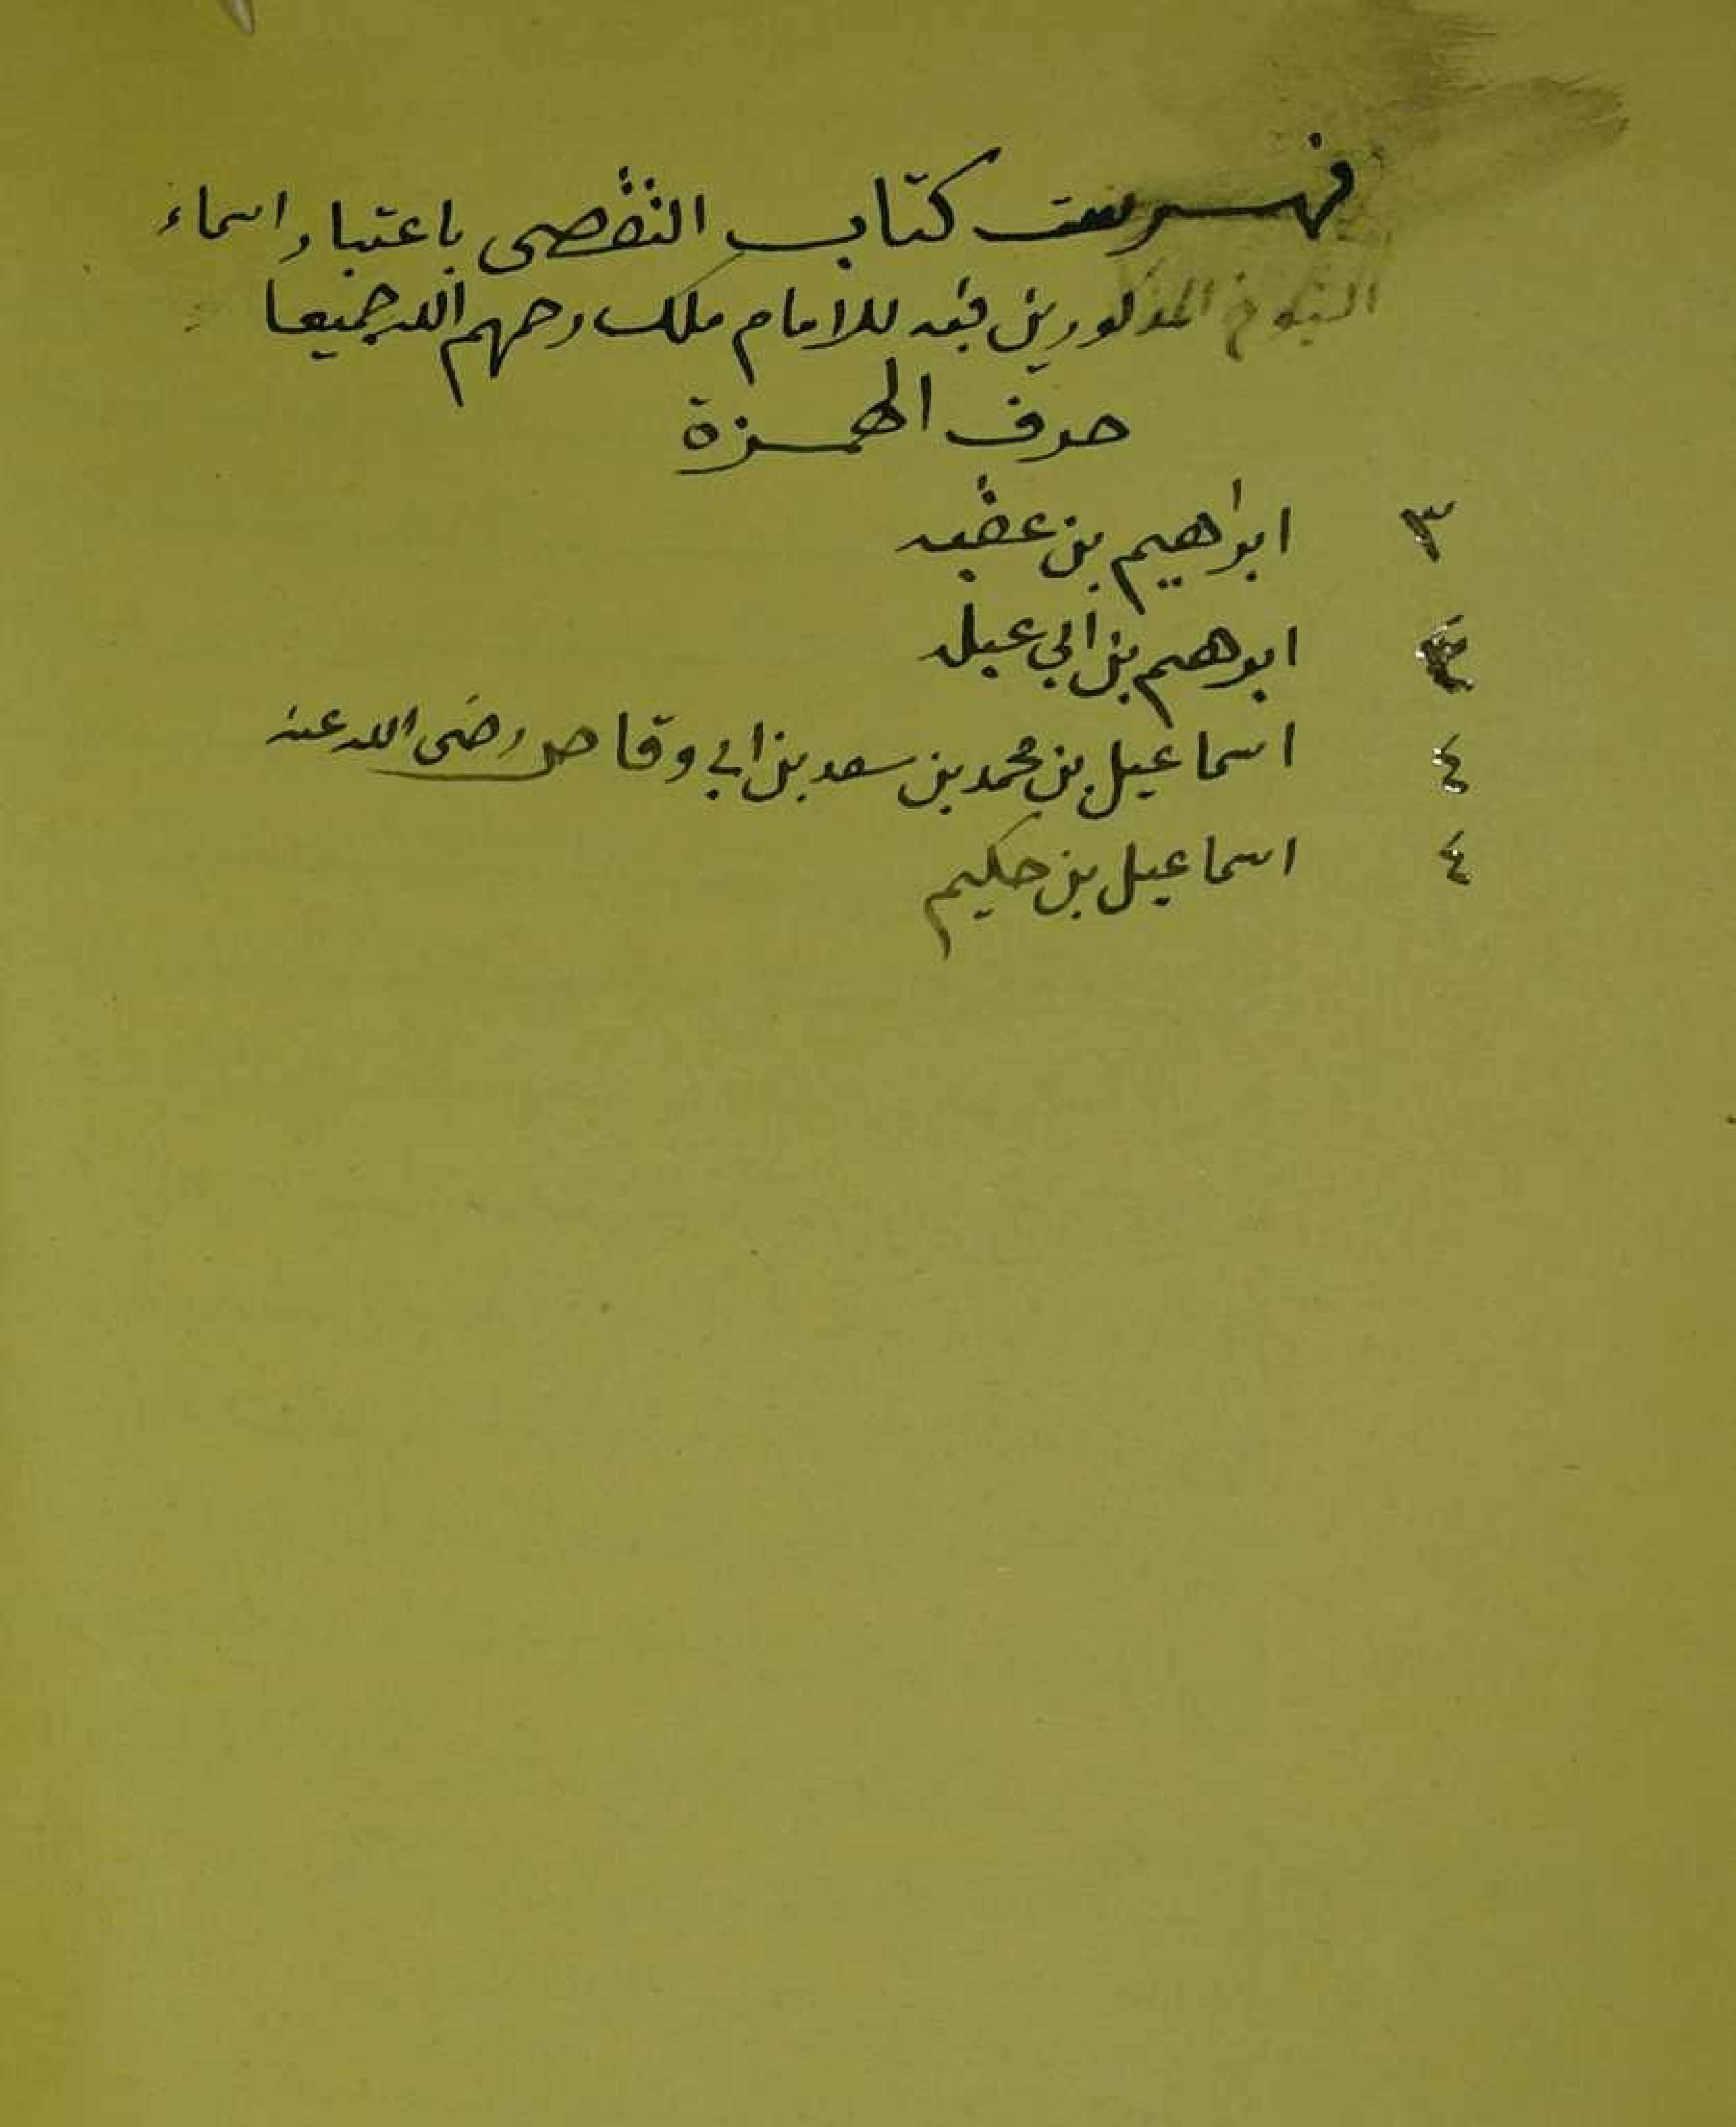 فهرست كتاب التقصى باعتبار اسماء
الشيوخ المذكورين فيه للامام ملك رحمهم الله جميعا
حرف الهمزة
٣ ابراهيم بن عقبه
٣ ابرهيم بن ابي عبله
٤ اسماعيل بن محمد بن سعد بن ابي وقاص رضى الله عنه
٤ اسماعيل بن حكيم